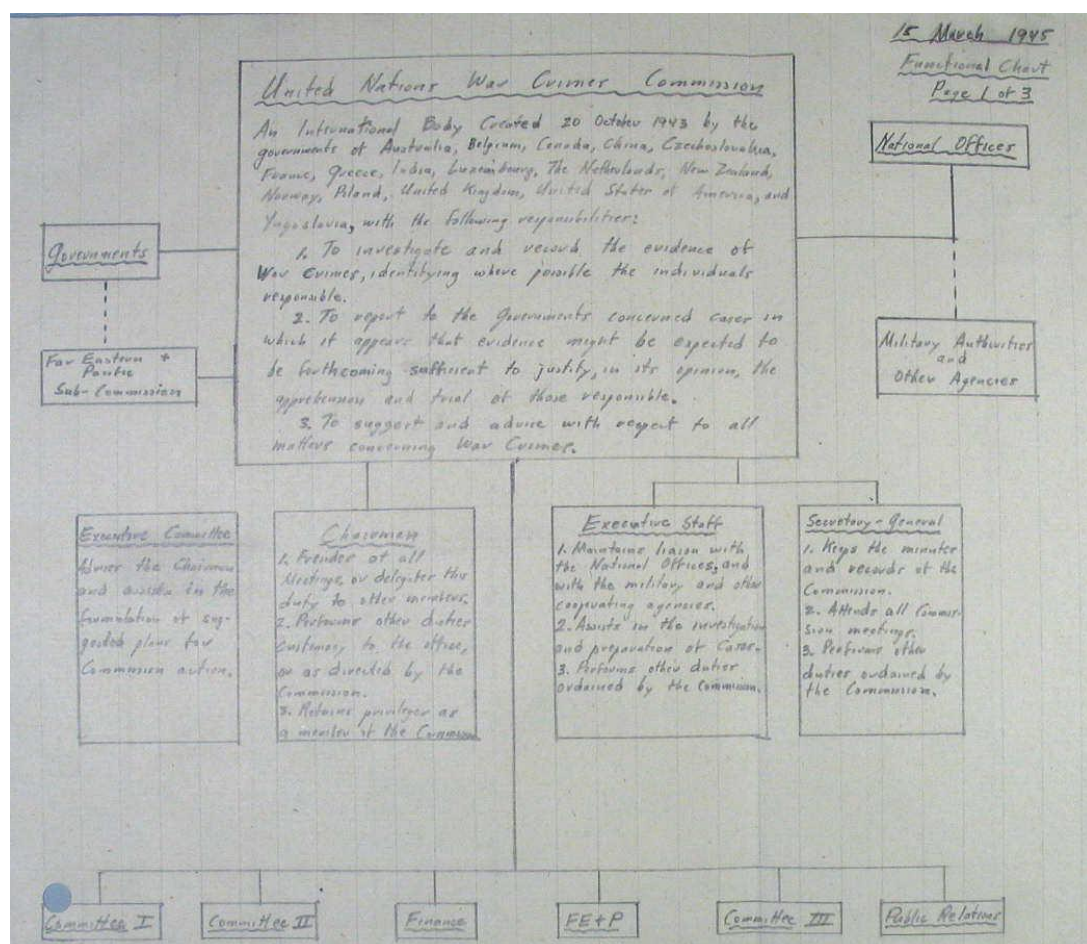 15 March 1945
Functional Chart
Page 1 of 3
United Nations War Crimes Commission
An International Body Created 20 October 1943 by the
governments of Australia, Belgium, Canada, China, Czechoslovakia,
France, Greece, India, Luxembourg, The Netherlands, New Zealand,
Norway, Poland, United Kingdom, United States of America, and
Yugoslavia, with the following responsibilities:
1. To investigate and record the evidence of
War Crimes, identifying where possible the individuals
responsible.
2. To report to the Governments concerned cases in
which it appears that evidence might be expected to
be forthcoming sufficient to justify, in its opinion, the
apprehension and trial of those responsible.
3. To suggest and advise with respect to all
matters concerning War Crimes.
National Offices
Governments
Far Eastern +
Pacific
Sub-Commission
Military Authorities
and
Other Agencies
Executive Committee
Advises the Chairman
and assists in the
formulation of sug-
gested plans for
Commission action.
Chairman
1. Presides at all
Meetings, or delegates this
duty to other members.
2. Performs other duties
customary to the office,
or as directed by the
Commission.
3. Retains privileges as
a member of the Commission
Executive Staff
1. Maintains liaison with
the National Offices, and
with the military and other
cooperating agencies.
2. Assists in the investigation
and preparation of Cases.
3. Performs other duties
ordained by the Commission.
Secretary-General
1. Keeps the minutes
and records of the
Commission.
2. Attends all Commis-
sion meetings.
3. Performs other
duties ordained by
the Commission.
Committee I
Committee II
Finance
FE+P
Committee III
Public Relations